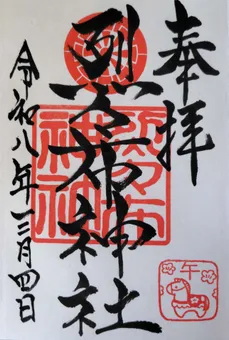 奉拝
烈々布神社
令和八年三月四日
午